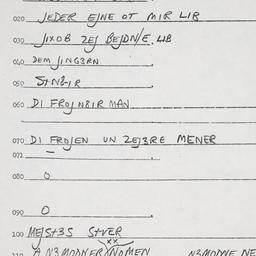 020 JEDER EJNE OT MIR LIB
030 JIXOB ZEJ BEJDN/E. LIB
040 DEM JINGERN
050
060 DI FROJ N8IR MAN
070 DI FROJEN UN ZEJ3RE MENER
071 —
080 O
090 O
100 MEJST3S STVER
110 A N3MODNER NOMEN N3MODNE NE